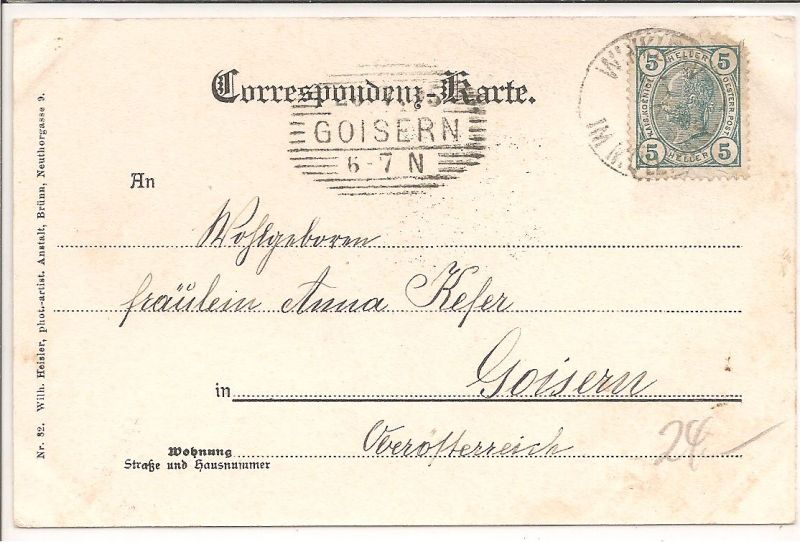 Correspondenz-Karte.
GOISERN
6-7 N
5 HELLER 5
KAIS.KOENIGL.
OESTERR.POST
5 HELLER 5
IM
An
Wohlgeboren
fräulein Anna Kefer
in Goisern
Oberösterreich
Wohnung
Straße und Hausnummer
24
Nr. 82. Wilh. Heisler, phot.-artist. Anstalt, Brünn, Neuthorgasse 9.